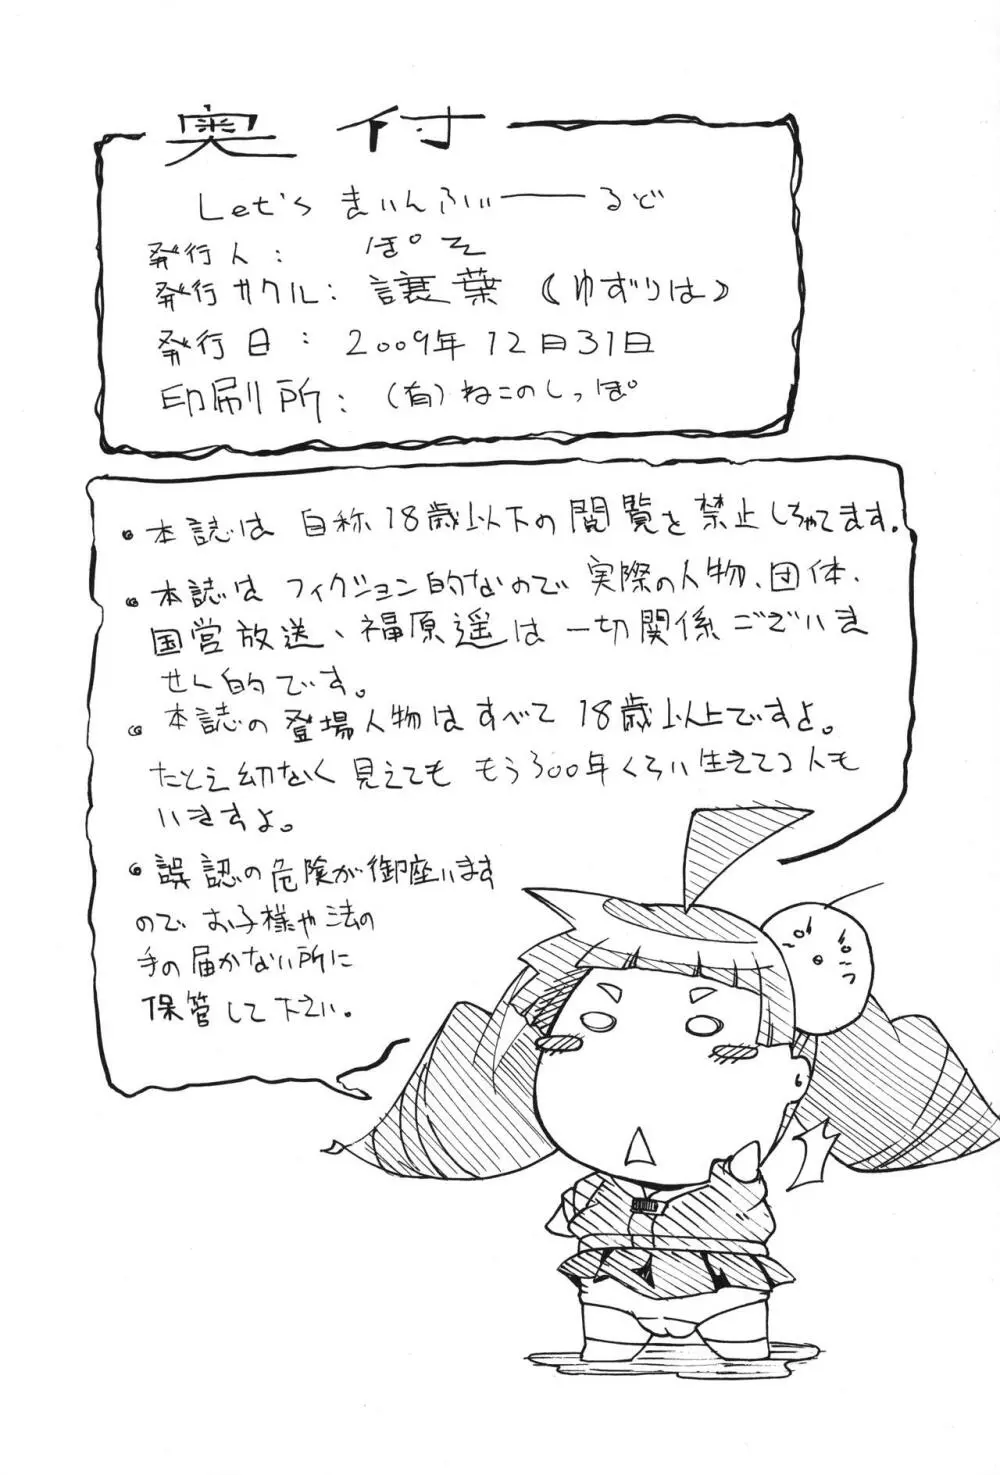 奥付
Let's きぃんふぃーるど
発行人: ぽ そ
発行サクル: 譲葉(ゆずりは)
発行日: 2009年12月31日
印刷所: (有)ねこのしっぽ
・本誌は 自称18歳以下の閲覧を禁止しちゃてます。
・本誌は フィクション的なので 実際の人物、団体、
国営放送、福原遥は 一切関係ございま
せん的です。
・本誌の登場人物はすべて 18歳以上ですよ。
たとえ幼なく見えても もう300年くらい生きてつ人も
いますよ。
・誤認の危険が御座います
ので お子様や法の
手の届かない所に
保管して下さい。